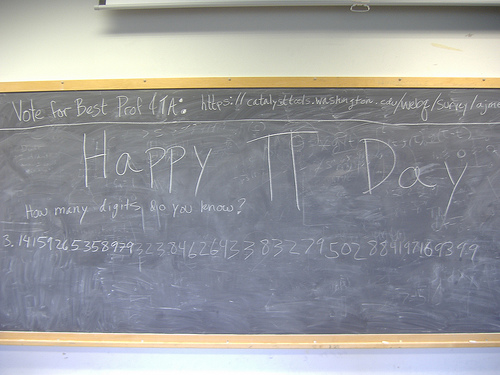 Vote for Best Prof & TA: https://catalysttools.washington.edu/webq/survey/ajme
Happy π Day
How many digits do you know?
3.14159265358979323846264338327950288419716939 9